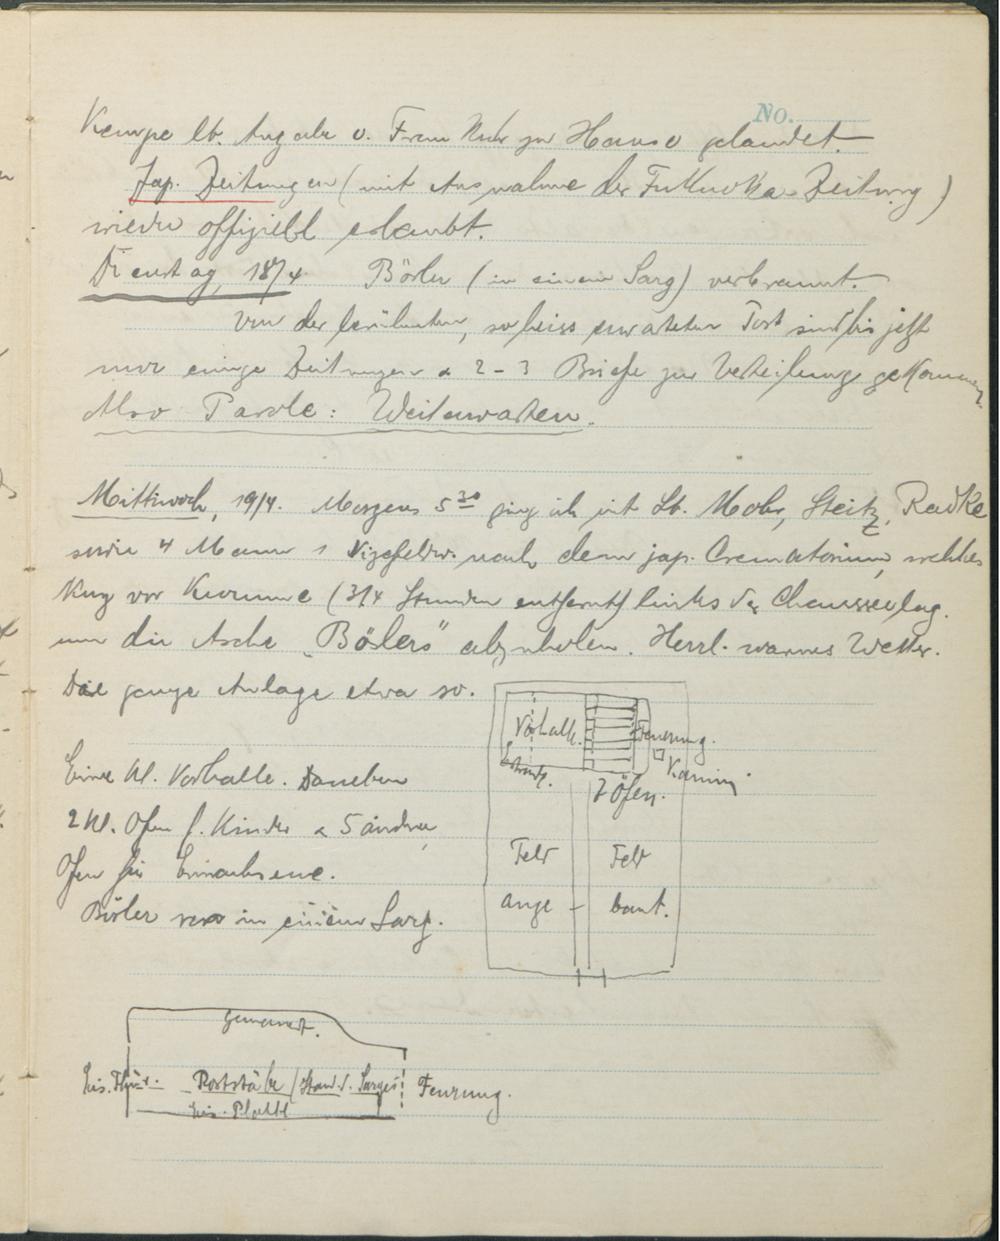 No.
Kempe lt. Angabe v. Frau zu Hause gelandet.
Jap. Zeitungen (mit Ausnahme der Fukuoka-Zeitung)
wieder offiziell erlaubt.
Dienstag, 18/4 Bösler (in einem Sarg) verbrannt.
Von der berühmten, so heiss erwarteten Post sind bis jetzt
nur einige Zeitungen & 2-3 Briefe zur Verteilung gekommen.
Also Parole: Weiterwarten.
Mittwoch, 19/4. Morgens 5 30 ging ich mit Lt. Modde, Steitz, Radke
sowie 4 Mann 1 Vizefeldw. nach dem jap. Crematorium, welches
kurz vor Kurume (3/4 Stunden entfernt) links der Chaussee lag.
um die Asche "Böslers" abzuholen. Herrl. warmes Wetter.
Die ganze Anlage etwa so.
Vorhalle. Feuerung.
Kamin.
7 Öfen.
Eine kl. Vorhalle. Daneben
2 kl. Öfen f. Kinder & 5 andere
Öfen für Erwachsene.
Bösler war in einem Sarg.
Feld Feld
ange - baut.
gemauert.
Eis. Thür. Roststäbe (Stand d. Sarges) Feurung.
Eis. Platte